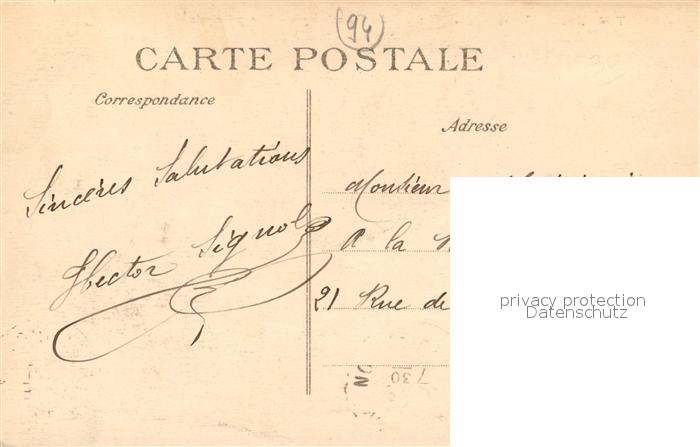 (94)
CARTE POSTALE
Correspondance
Adresse
Sincères Salutations
Hector Signol
Monsieur
A la
21 Rue de
privacy protection
Datenschutz
730